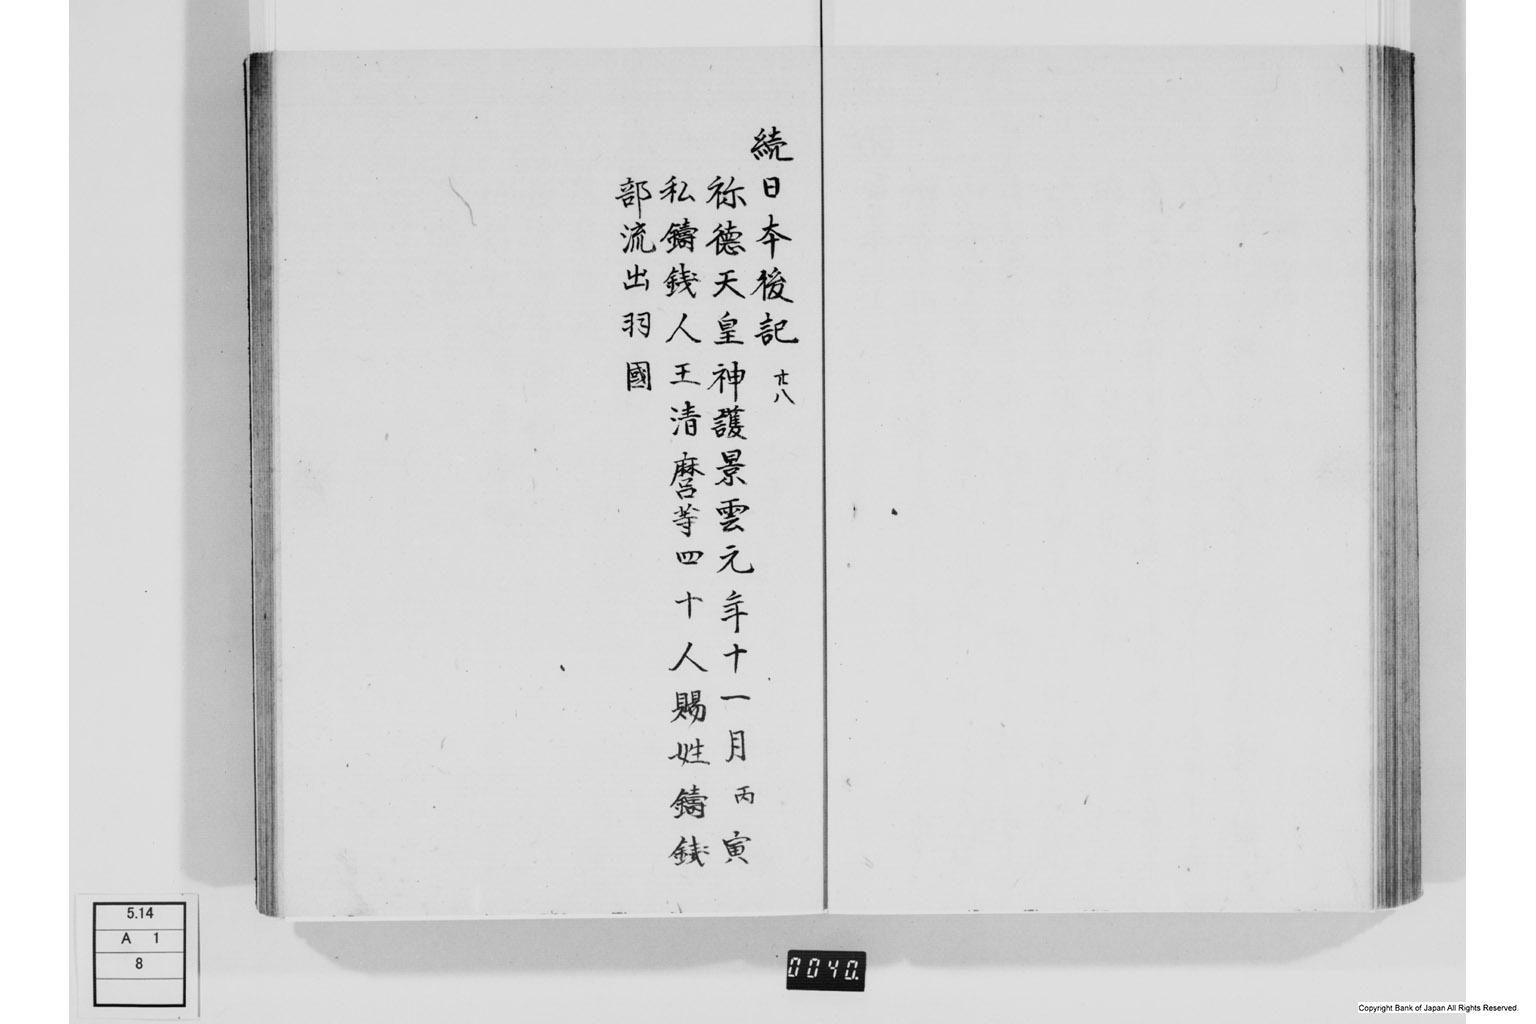 続日本後記 廿八
祢德天皇神護景雲元年十一月丙寅
私鑄錢人王清麿等四十人賜姓鑄錢
部流出羽國
5.14
A 1
8
0040.
Copyright Bank of Japan All Rights Reserved.